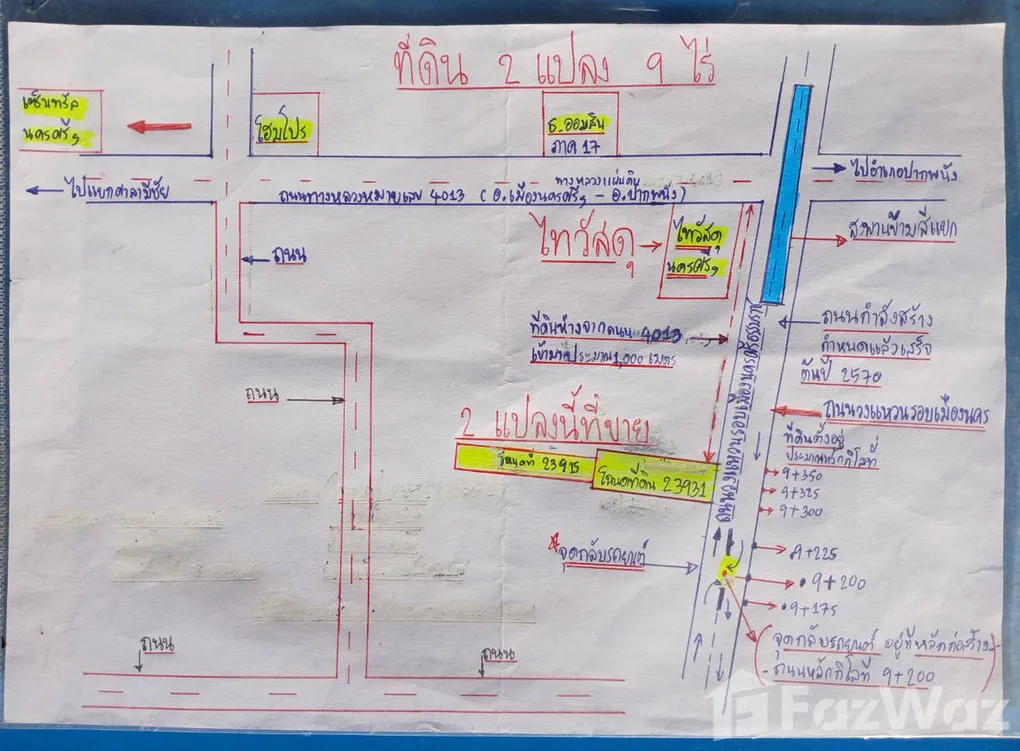 ที่ดิน 2 แปลง 9 ไร่
เซ็นทรัล
นครศรีฯ
โฮมโปร
ธ.ออมสิน
ภาค 17
ไปแยกศาลามีชัย
ทางหลวงแผ่นดิน
ถนนทางหลวงหมายเลข 4013 (อ.เมืองนครศรีฯ - อ.ปากพนัง)
ไปอำเภอปากพนัง
ไทวัสดุ
ไทวัสดุ
นครศรีฯ
สะพานข้ามสี่แยก
ถนน
ที่ดินห่างจากถนน 4013
เข้ามาประมาณ 1,000 เมตร
ถนนกำลังสร้าง
กำหนดแล้วเสร็จ
ต้นปี 2570
ถนน
ถนนวงแหวนรอบเมืองนคร
2 แปลงนี้ที่ขาย
ถนนวงแหวนรอบเมืองนครศรีธรรมราช
ที่ดินตั้งอยู่
ประมาณหลักกิโลที่
โฉนดที่ 23915
โฉนดที่ดิน 23931
9+350
9+325
9+300
จุดกลับรถยนต์
9+225
9+200
9+175
ถนน
ถนน
(จุดกลับรถยนต์ อยู่ที่หลักก่อสร้าง
ถนนหลักกิโลที่ 9+200)
FazWaz